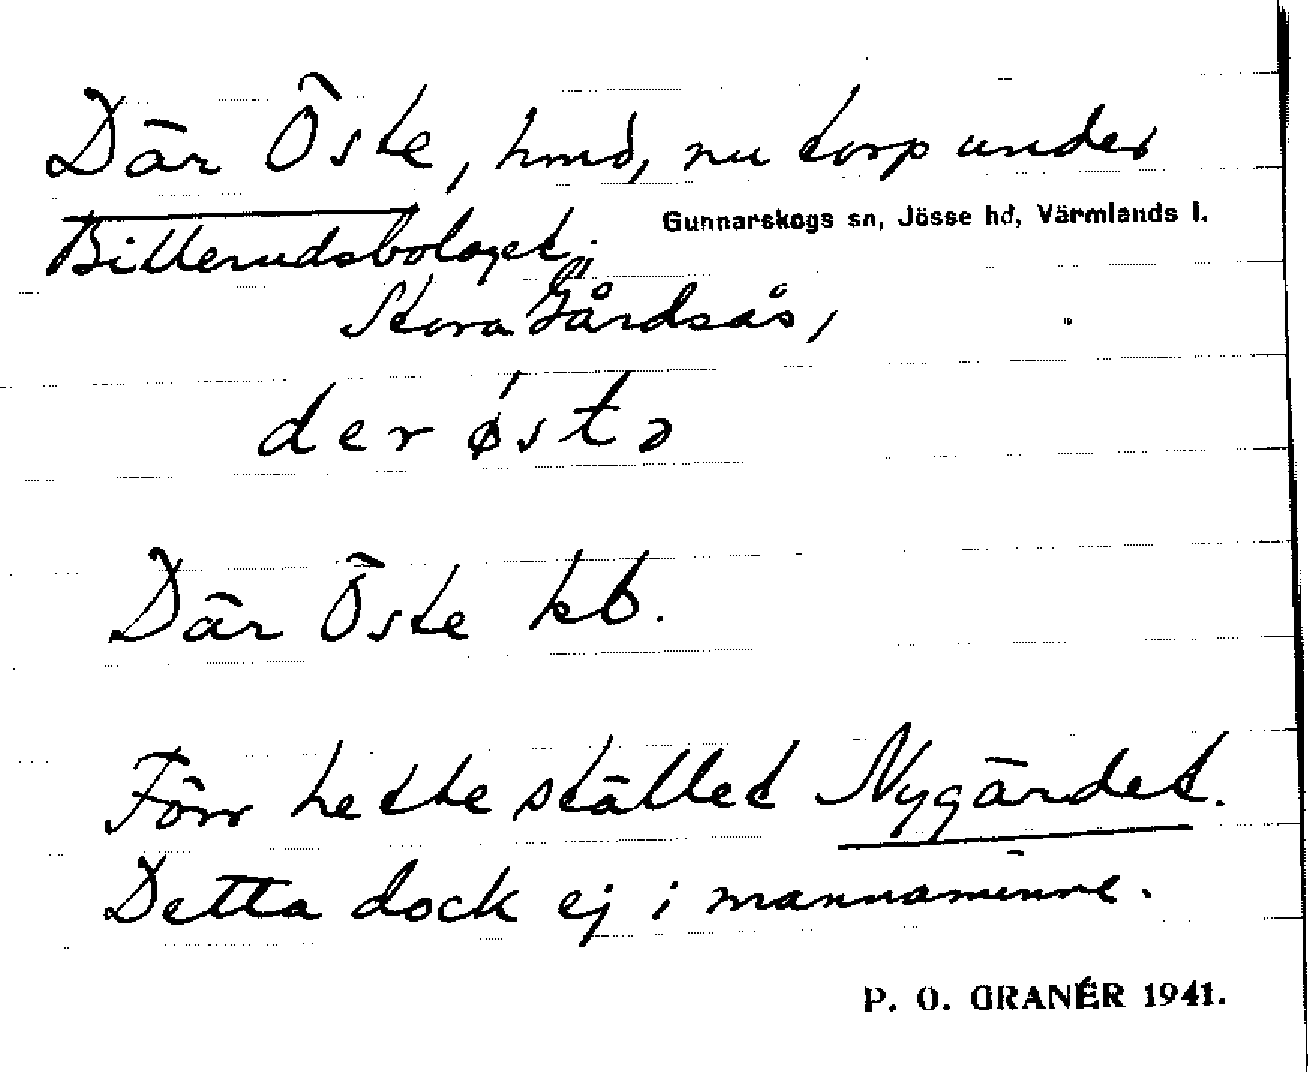 Där Öste, hmd, nu torp under
Gunnarskogs sn, Jösse hd, Värmlands l.
Billerudsbolaget,
Stora Gårdsås,
der østə
Där Öste kb.
Förr hette stället Nygärdet.
Detta dock ej i mannaminne.
P. O. GRANÉR 1941.